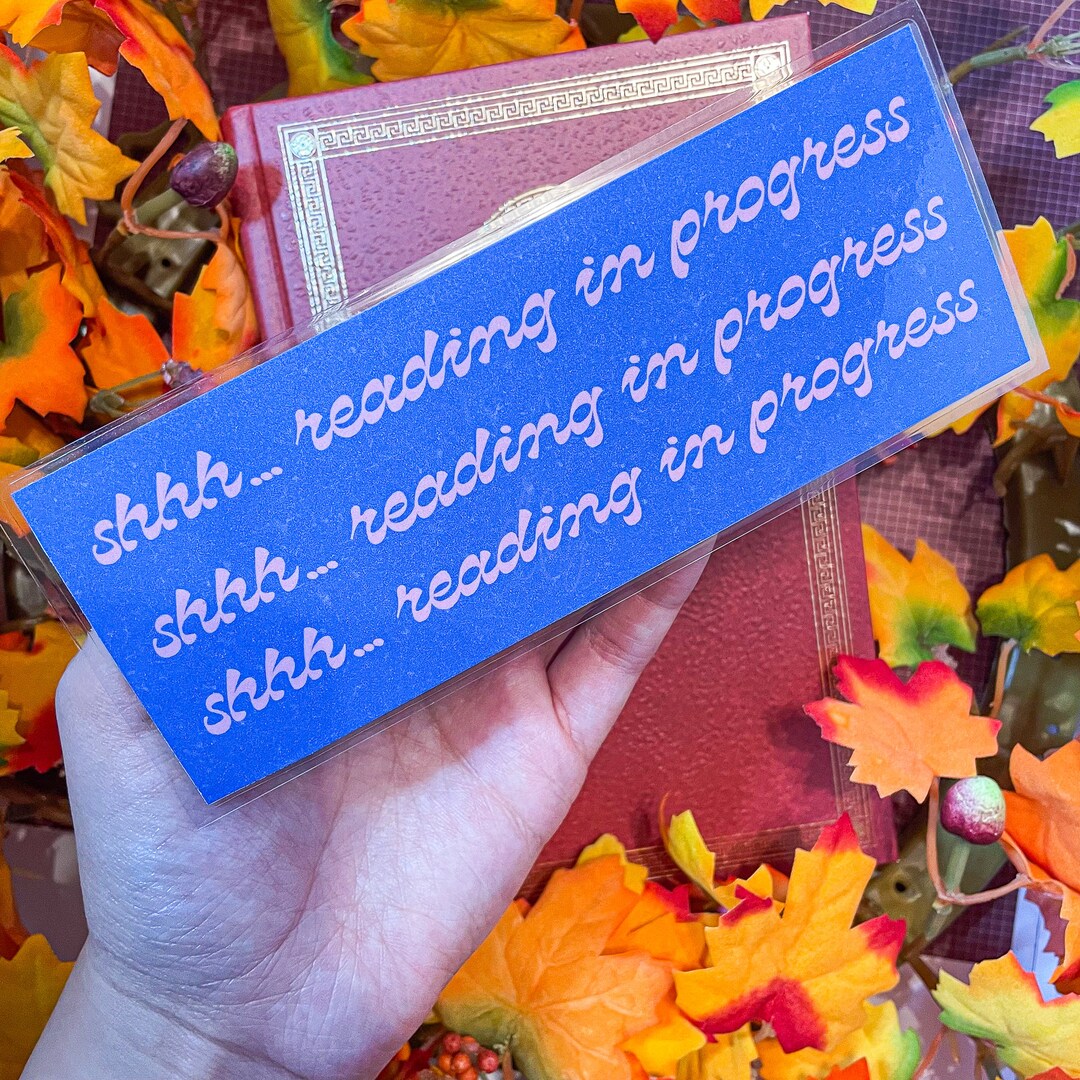 shhh... reading in progress
shhh... reading in progress
shhh... reading in progress